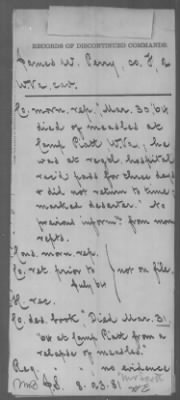 RECORDS OF DISCONTINUED COMMANDS.
James W. Perry, co. F, 2
W.Va. cav.
Co. morn. rep. "Mar. 30 '64
died of measles at
Camp Piatt W.Va., he
was at regtl. hospital
rec'd pass for three days
& did not return to time
marked deserter." No
previous inform'n from morn
repts.
Cons. morn. rep.
Co. ret. prior to not on file.
July 64
H rec.
Co. des. book "Died Mar. 31
'64 at Camp Piatt from a
relapse of measles."
Reg. " " no evidence
8. 23. 81